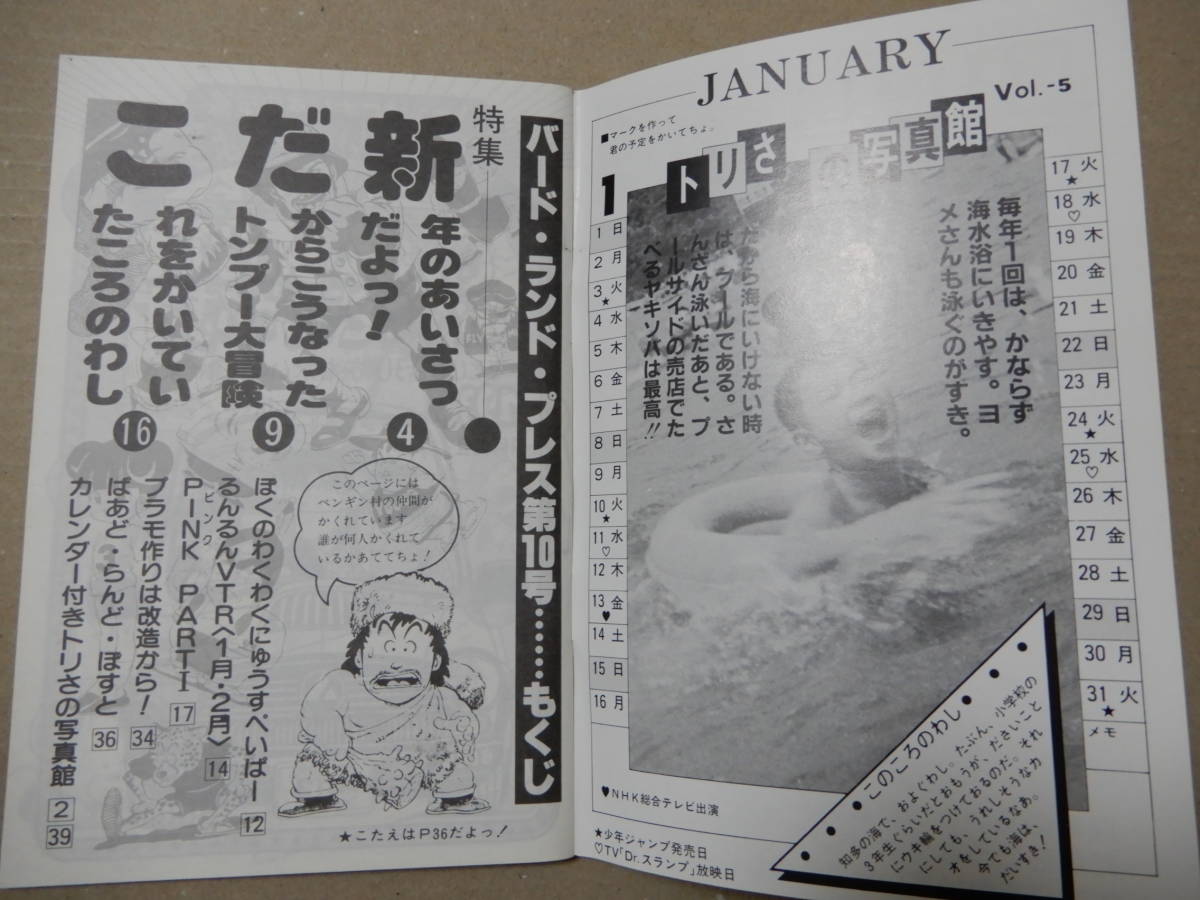 バード・ランド・プレス第10号……もくじ
特集
新年のあいさつ
だよっ！
4
だからこうなった
トンプー大冒険
9
これをかいてい
たころのわし
16
ぼくのわくわくにゅうすぺいぱー 12
るんるんVTR〈1月・2月〉 14
ピンク
PINK PARTⅠ 17
プラモ作りは改造から！ 34
ばあど・らんど・ぽすと 36
カレンダー付きトリさの写真館 2 39
このページには
ペンギン村の仲間が
かくれています
誰が何人かくれて
いるかあててちょ！
★こたえはP36だよっ！
JANUARY
Vol.-5
■マークを作って
君の予定をかいてちょ。
トリさの写真館
1
1 日
2 月
3 火 ★
4 水
5 木
6 金
7 土
8 日
9 月
10 火 ★
11 水 ♡
12 木
13 金 ♥
14 土
15 日
16 月
17 火 ★
18 水 ♡
19 木
20 金
21 土
22 日
23 月
24 火 ★
25 水 ♡
26 木
27 金
28 土
29 日
30 月
31 火 ★
メモ
毎年1回は、かならず
海水浴にいきやす。ヨ
メさんも泳ぐのがすき。
だから海にいけない時
は、プールである。さ
んざん泳いだあと、プ
ールサイドの売店でた
べるヤキソバは最高!!
●このころのわし●
知多の海で、およぐわし。たぶん、小学校の
3年生ぐらいだとおもうが、ださいこと
にウキ輪をつけておるのだ。それ
にしても、うれしそうなカ
オをしているなあ。
今でも海は、
だいすき！
♥NHK総合テレビ出演
★少年ジャンプ発売日
♡TV「Dr.スランプ」放映日